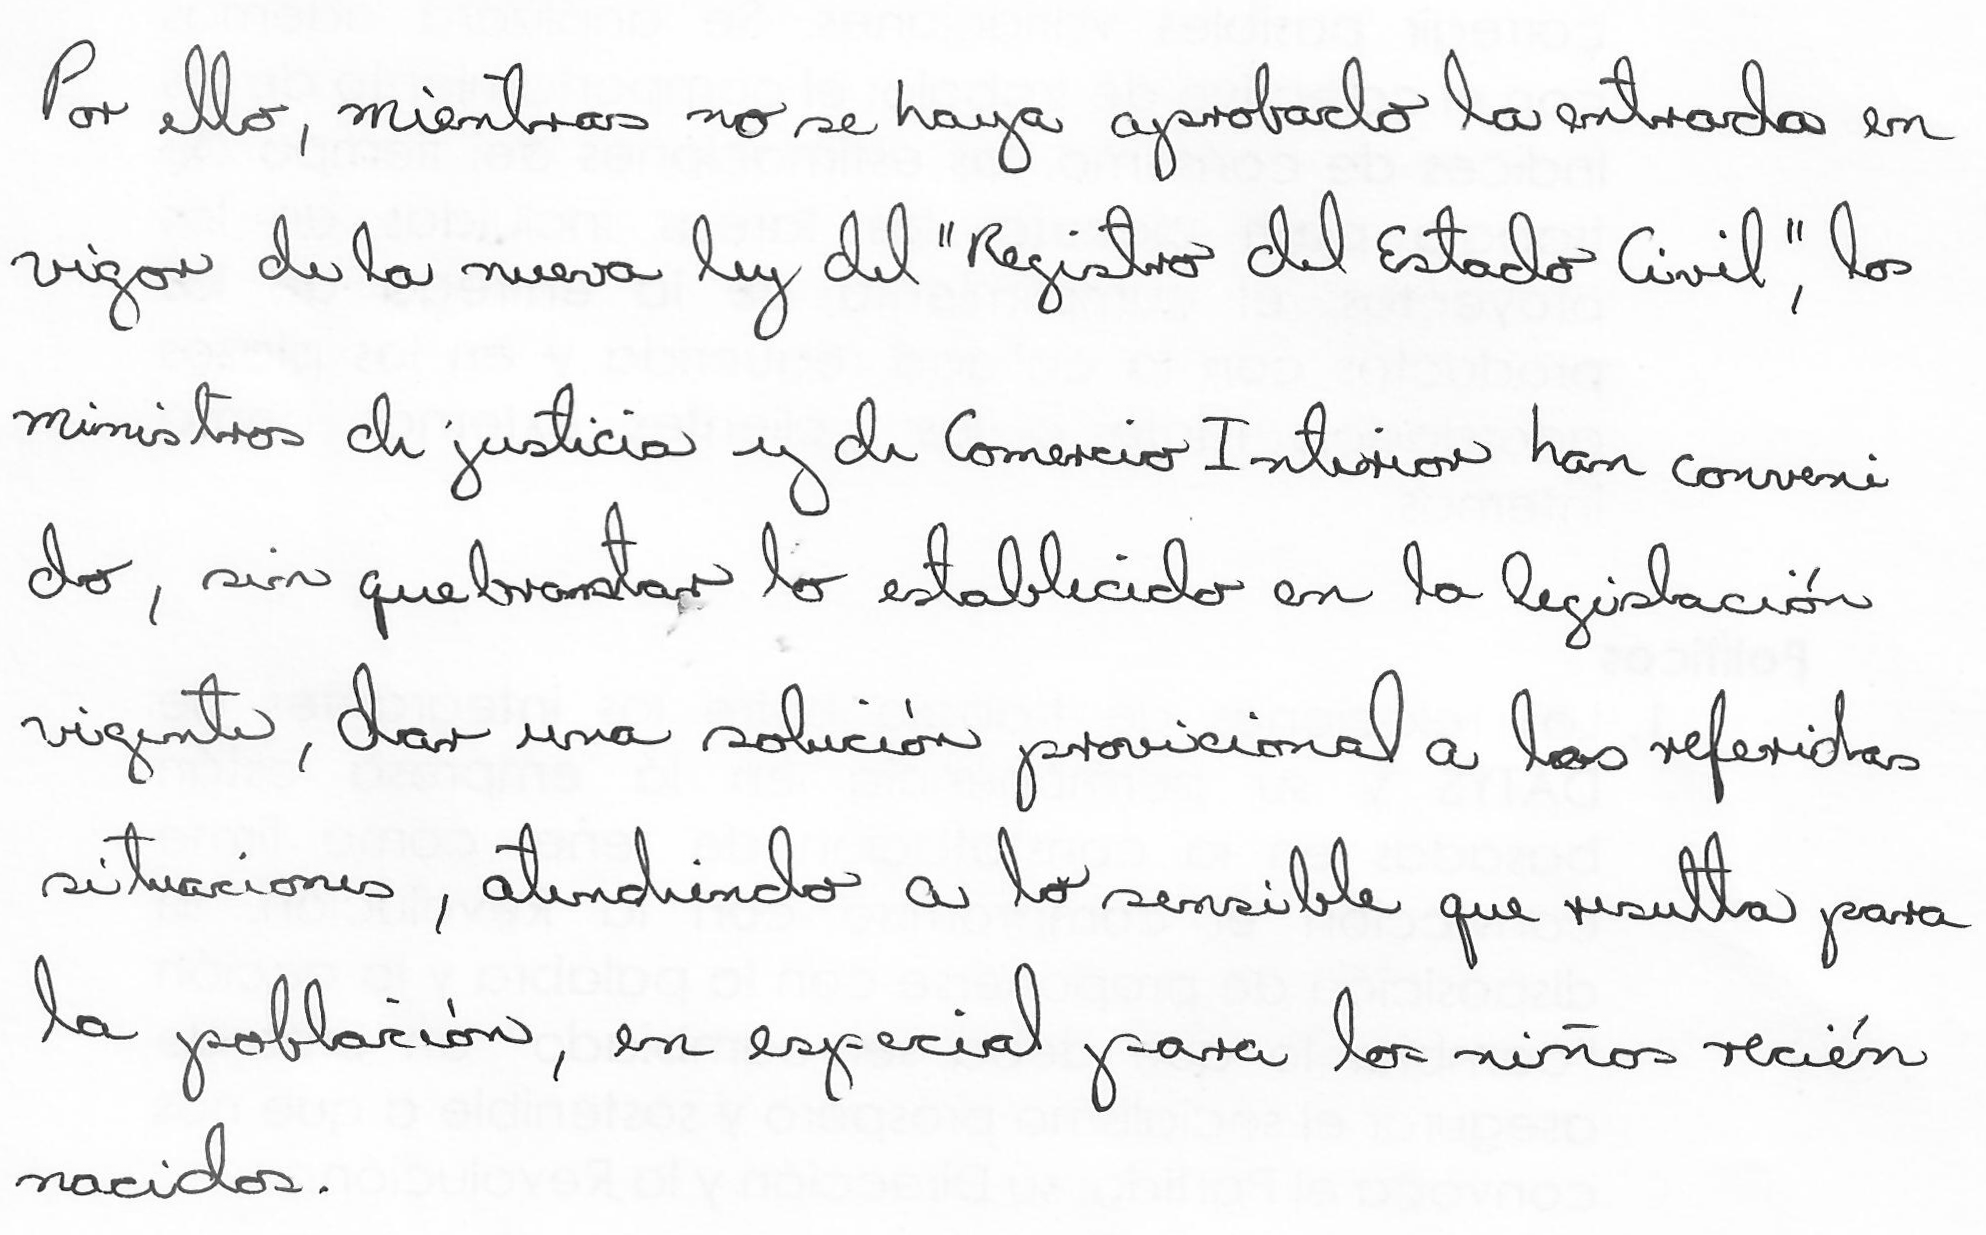 Por ello, mientras no se haya aprobado la entrada en
vigor de la nueva ley del "Registro del Estado Civil", los
ministros de justicia y de Comercio Interior han conveni
do, sin quebrantar lo establecido en la legislación
vigente, dar una solución provicional a las referidas
situaciones, atendiendo a lo sensible que resulta para
la población, en especial para los niños recién
nacidos.